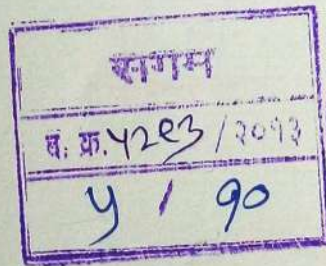 सगम
द. क्र. ५२९३ / २०१३
५ / १०